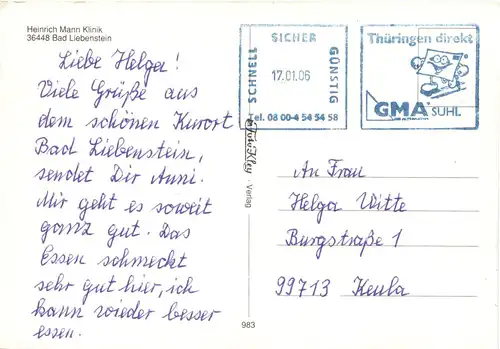 Heinrich Mann Klinik
36448 Bad Liebenstein
Liebe Helga!
Viele Grüße aus
dem schönen Kurort
Bad Liebenstein,
sendet Dir Anni.
Mir geht es soweit
ganz gut. Das
Essen schmeckt
sehr gut hier, ich
kann wieder besser
essen.
SCHNELL
SICHER
GÜNSTIG
17.01.06
Tel. 08 00-4 54 54 58
Thüringen direkt
GMA SUHL
Verlag
983
An Frau
Helga Witte
Burgstraße 1
99713 Keula